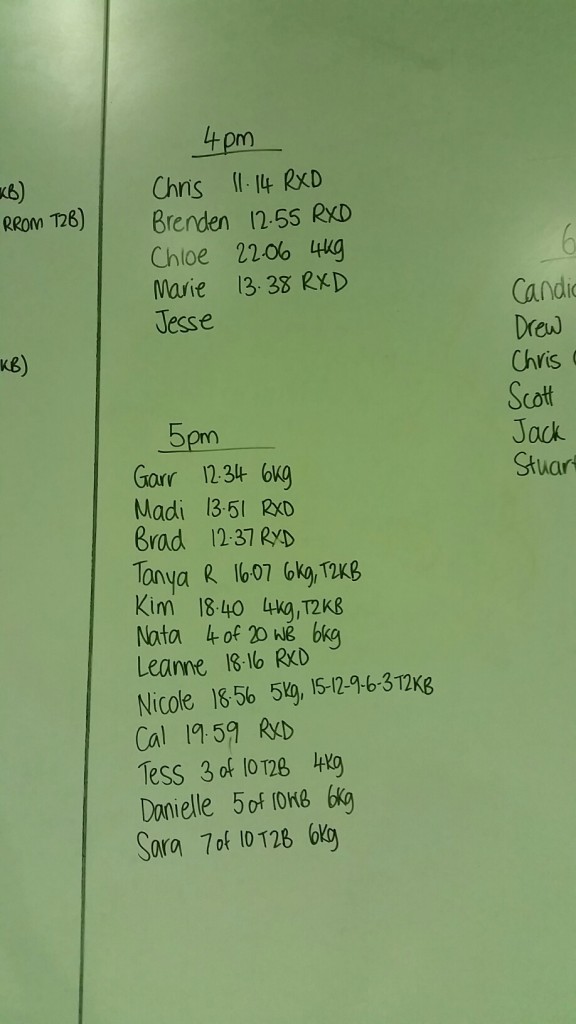 KB)
RROM T2B)
KB)
4pm
Chris 11.14 RXD
Brenden 12.55 RXD
Chloe 22.06 4kg
Marie 13.38 RXD
Jesse
5pm
Garr 12.34 6kg
Madi 13.51 RXD
Brad 12.37 RXD
Tanya R 16.07 6kg, T2KB
Kim 18.40 4kg, T2KB
Nata 4 of 20 WB 6kg
Leanne 18.16 RXD
Nicole 18.56 5kg, 15-12-9-6-3 T2KB
Cal 19.59 RXD
Tess 3 of 10 T2B 4kg
Danielle 5 of 10 WB 6kg
Sara 7 of 10 T2B 6kg
6
Candic
Drew
Chris
Scott
Jack
Stuart